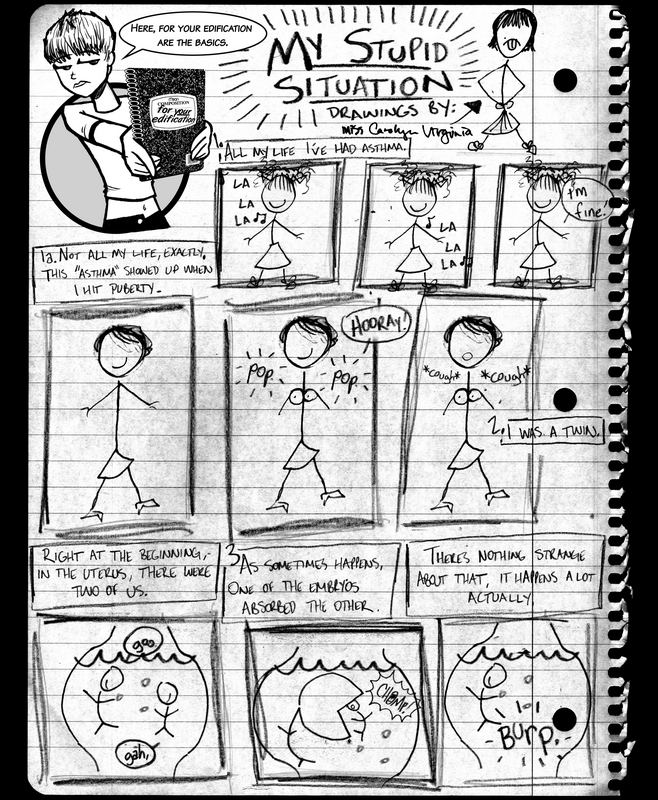 HERE, FOR YOUR EDIFICATION
ARE THE BASICS.
COMPOSITION
for your
edification
MY STUPID
SITUATION
DRAWINGS BY:
Miss Carolyn Virginia
1. ALL MY LIFE I'VE HAD ASTHMA.
LA
LA
LA
LA
LA
LA
I'm
fine!
1a. NOT ALL MY LIFE, EXACTLY.
THIS "ASTHMA" SHOWED UP WHEN
I HIT PUBERTY.
POP
POP
HOORAY!
*cough*
*cough*
2. I WAS A TWIN.
RIGHT AT THE BEGINNING,
IN THE UTERUS, THERE WERE
TWO OF US.
3. AS SOMETIMES HAPPENS,
ONE OF THE EMBRYOS
ABSORBED THE OTHER.
THERE'S NOTHING STRANGE
ABOUT THAT, IT HAPPENS A LOT
ACTUALLY.
goo
gah,
CHOMP!
BURP.